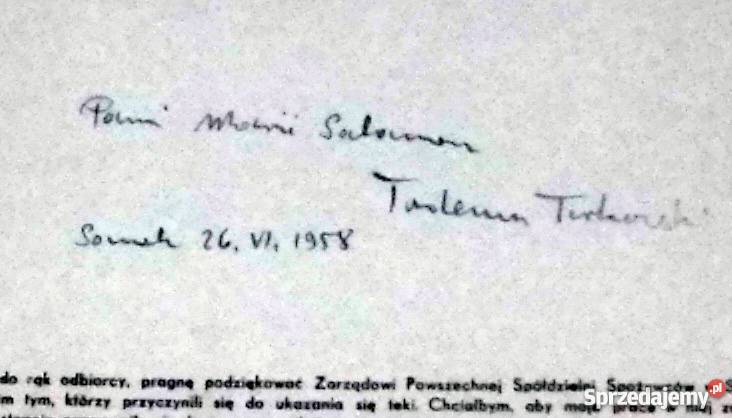 Pani Marii Salamon
Tadeusz Turkowski
Sanok 26. VI. 1958
do rąk odbiorcy, pragnę podziękować Zarządowi Powszechnej Spółdzielni Spożywców
m tym, którzy przyczynili się do ukazania się teki. Chciałbym, aby moje
Sprzedajemy.pl